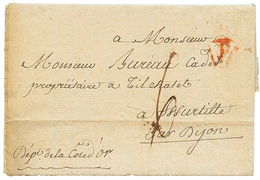 à Monsieur
Monsieur Bureau Cadet
propriétaire à Tilchatel
à
par Dijon
Dépt. de la Côte d'Or